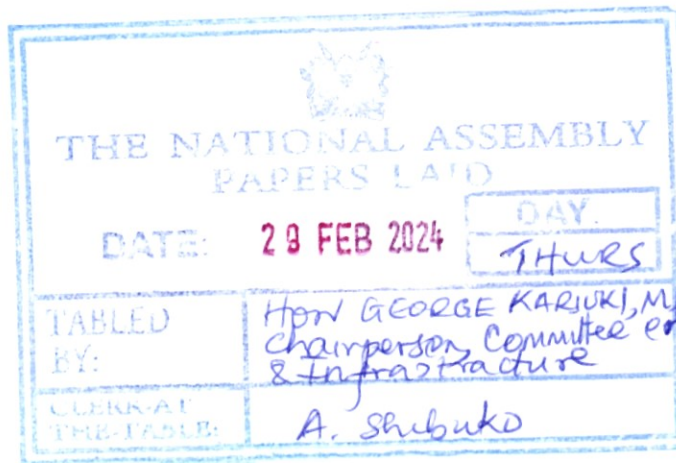 THE NATIONAL ASSEMBLY
PAPERS LAID
DATE: 29 FEB 2024
DAY.
THURS
TABLED BY:
Hon GEORGE KARIUKI, M
Chairperson, Committee on
& Infrastracture
CLERK-AT THE-TABLE:
A. Shibuko